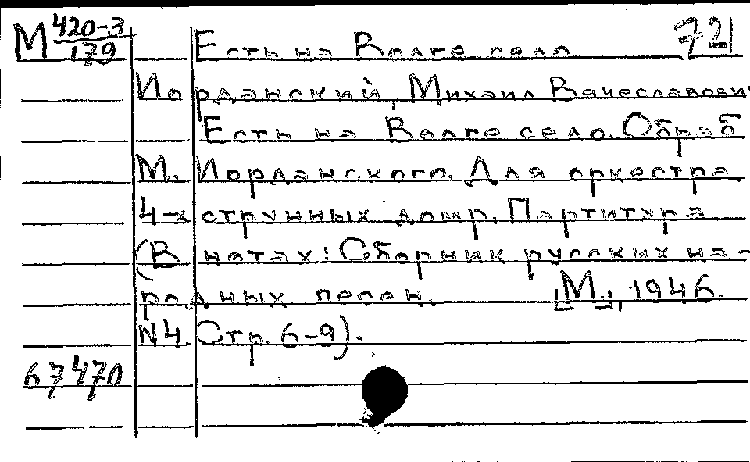 М 420-3/179 Есть на Волге село 721
Иорданский, Михаил Вячеславович
Есть на Волге село. Обраб.
М. Иорданского. Для оркестра
4-х струнных домр. Партитура
(В нотах: Сборник русских на-
родных песен. [М.], 1946.
N4. Стр. 6-9).
67470